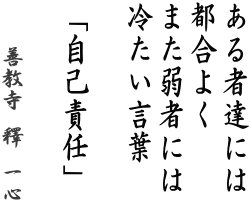 ある者達には
都合よく
また弱者には
冷たい言葉
「自己責任」
善教寺 釋 一心